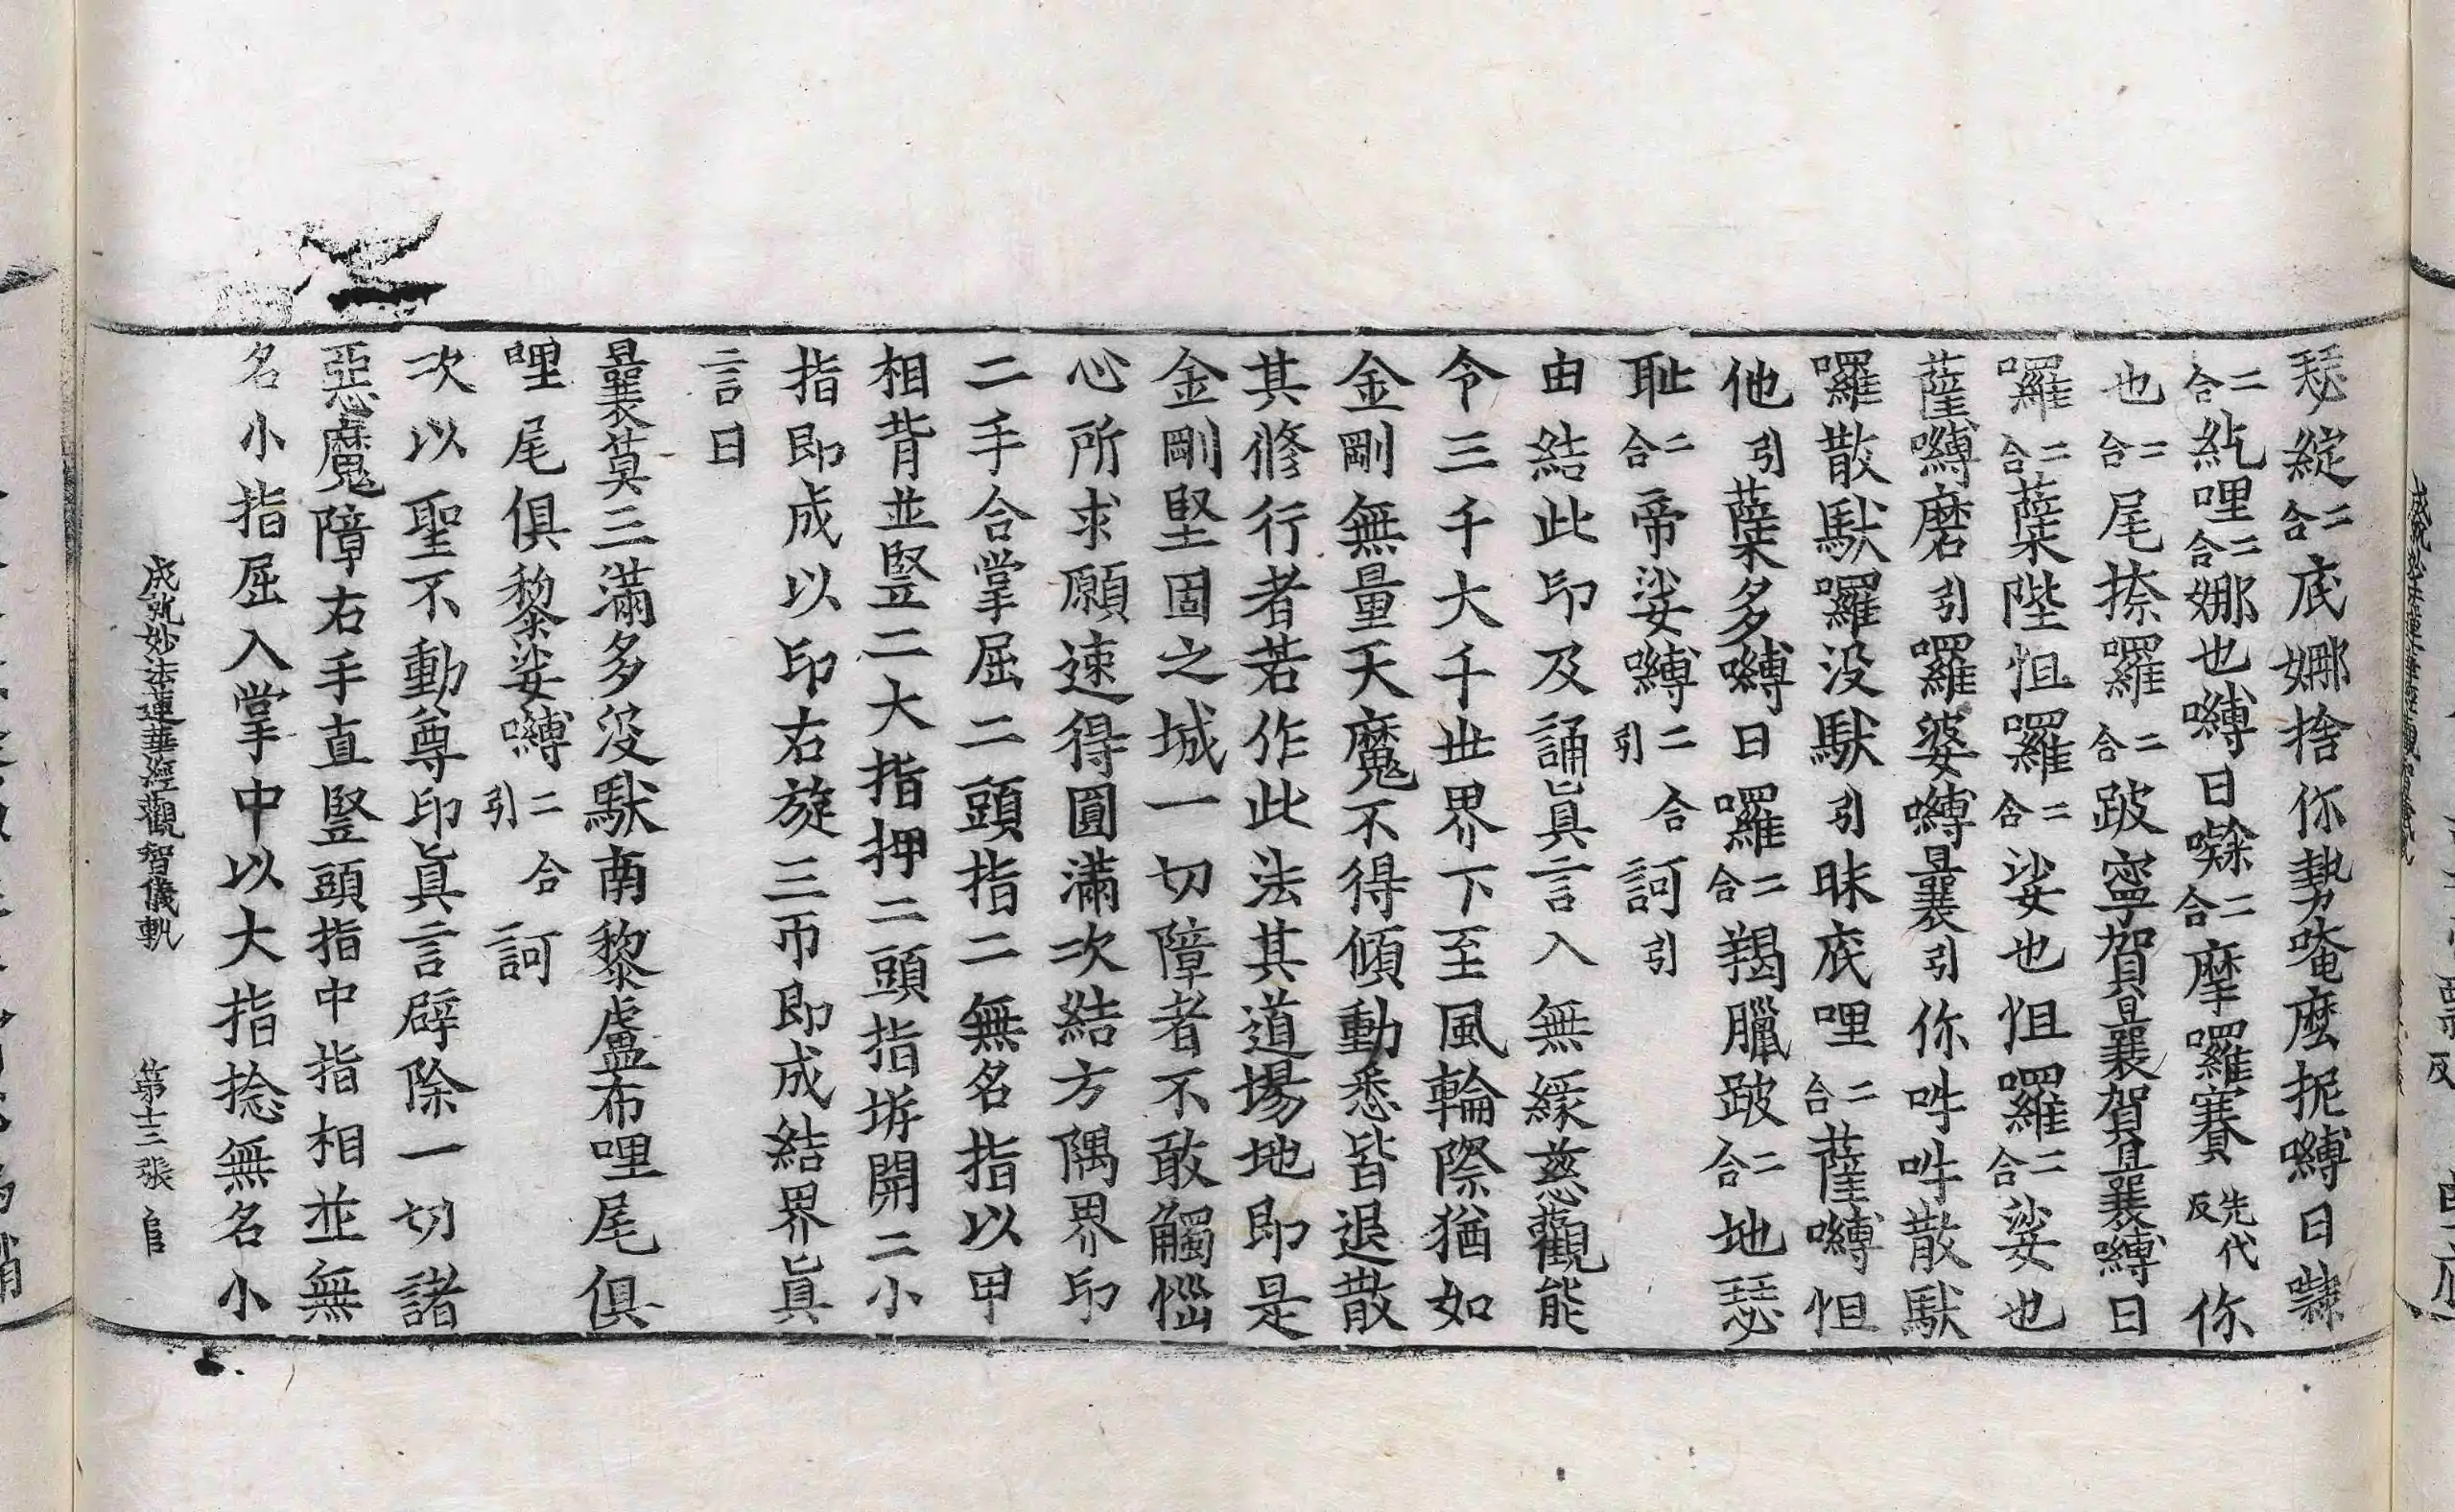 瑟綻二合底娜捨你勢唵麼抳嚩日㘑
二合紇哩二合娜也嚩日㘑二合摩囉賽先代反你
也二合尾捺囉二合跛寧賀曩賀曩嚩日
囉二合蘗陛怛囉二合娑也怛囉二合娑也
薩嚩磨引囉婆嚩曩引你吽吽散馱
囉散馱囉沒馱引昧底哩二合薩嚩怛
他引蘗多嚩日囉二合羯臘跛二合地瑟
耻二合帝娑嚩二合引訶引
由結此印及誦眞言入無緣慈觀能
令三千大千世界下至風輪際猶如
金剛無量天魔不得傾動悉皆退散
其修行者若作此法其道場地即是
金剛堅固之城一切障者不敢觸惱
心所求願速得圓滿次結方隅界印
二手合掌屈二頭指二無名指以甲
相背並竪二大指押二頭指㧍開二小
指即成以印右旋三帀即成結界眞
言曰
曩莫三滿多沒馱南黎盧布哩尾俱
哩尾俱黎娑嚩二合引訶
次以聖不動尊印眞言辟除一切諸
惡魔障右手直竪頭指中指相並無
名小指屈入掌中以大指捻無名小
成就妙法蓮華經觀智儀軌 第十三張